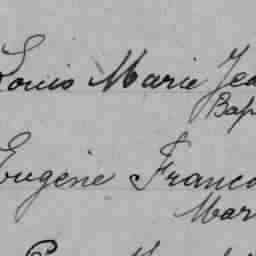 Louis Marie Jea
Bap
Eugène Franco
Mar